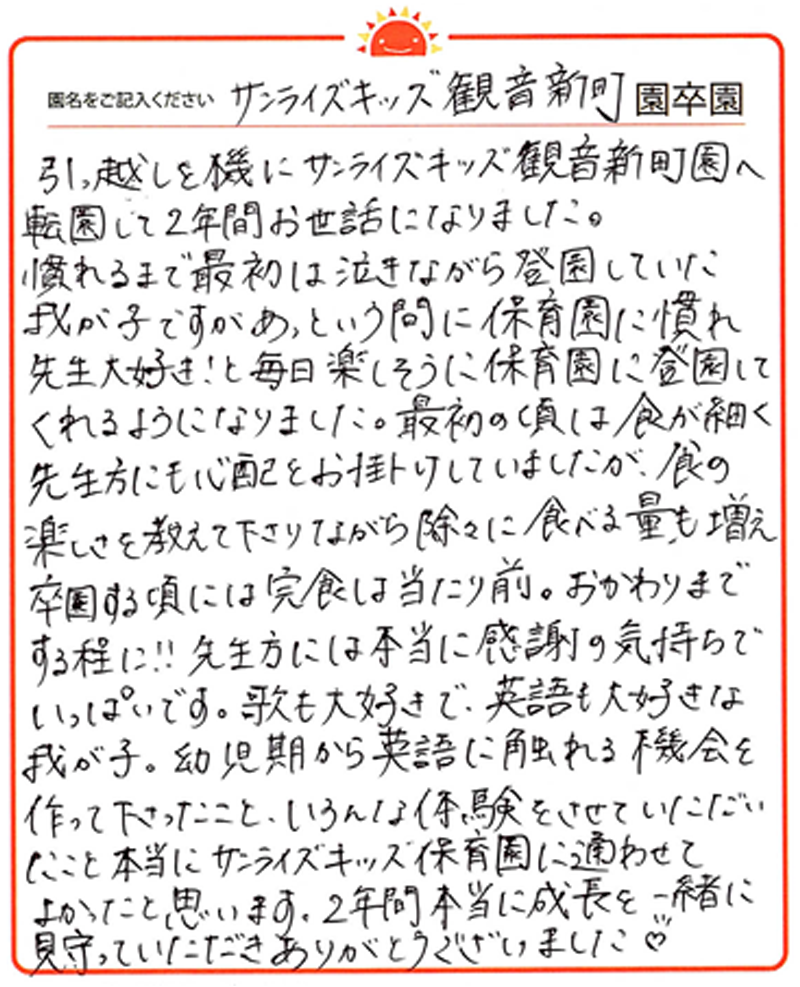 園名をご記入ください サンライズキッズ観音新町 園卒園
引っ越しを機にサンライズキッズ観音新町園へ
転園して2年間お世話になりました。
慣れるまで最初は泣きながら登園していた
我が子ですがあっという間に保育園に慣れ
先生大好き!と毎日楽しそうに保育園に登園して
くれるようになりました。最初の頃は食が細く
先生方にも心配をお掛けしていましたが、食の
楽しさを教えて下さりながら除々に食べる量も増え
卒園する頃には完食は当たり前。おかわりまで
する程に!!先生方には本当に感謝の気持ちで
いっぱいです。歌も大好きで、英語も大好きな
我が子。幼児期から英語に触れる機会を
作って下さったこと、いろんな体験をさせていただい
たこと本当にサンライズキッズ保育園に通わせて
よかったと思います。2年間本当に成長を一緒に
見守っていただきありがとうございました♡